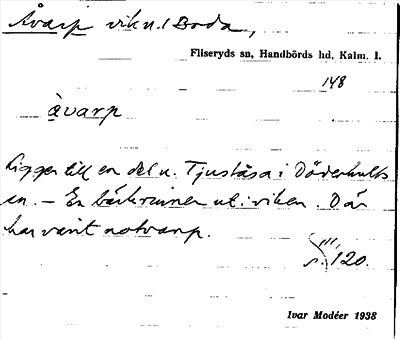 Åvarp vik u. / Boda,
Fliseryds sn, Handbörds hd, Kalm. l.
148
åvarp
Ligger till en del u. Tjuståsa i Döderhults
sn. – En bäck rinner ut i viken. Där
har varit notvarp.
s. 120.
Ivar Modéer 1938